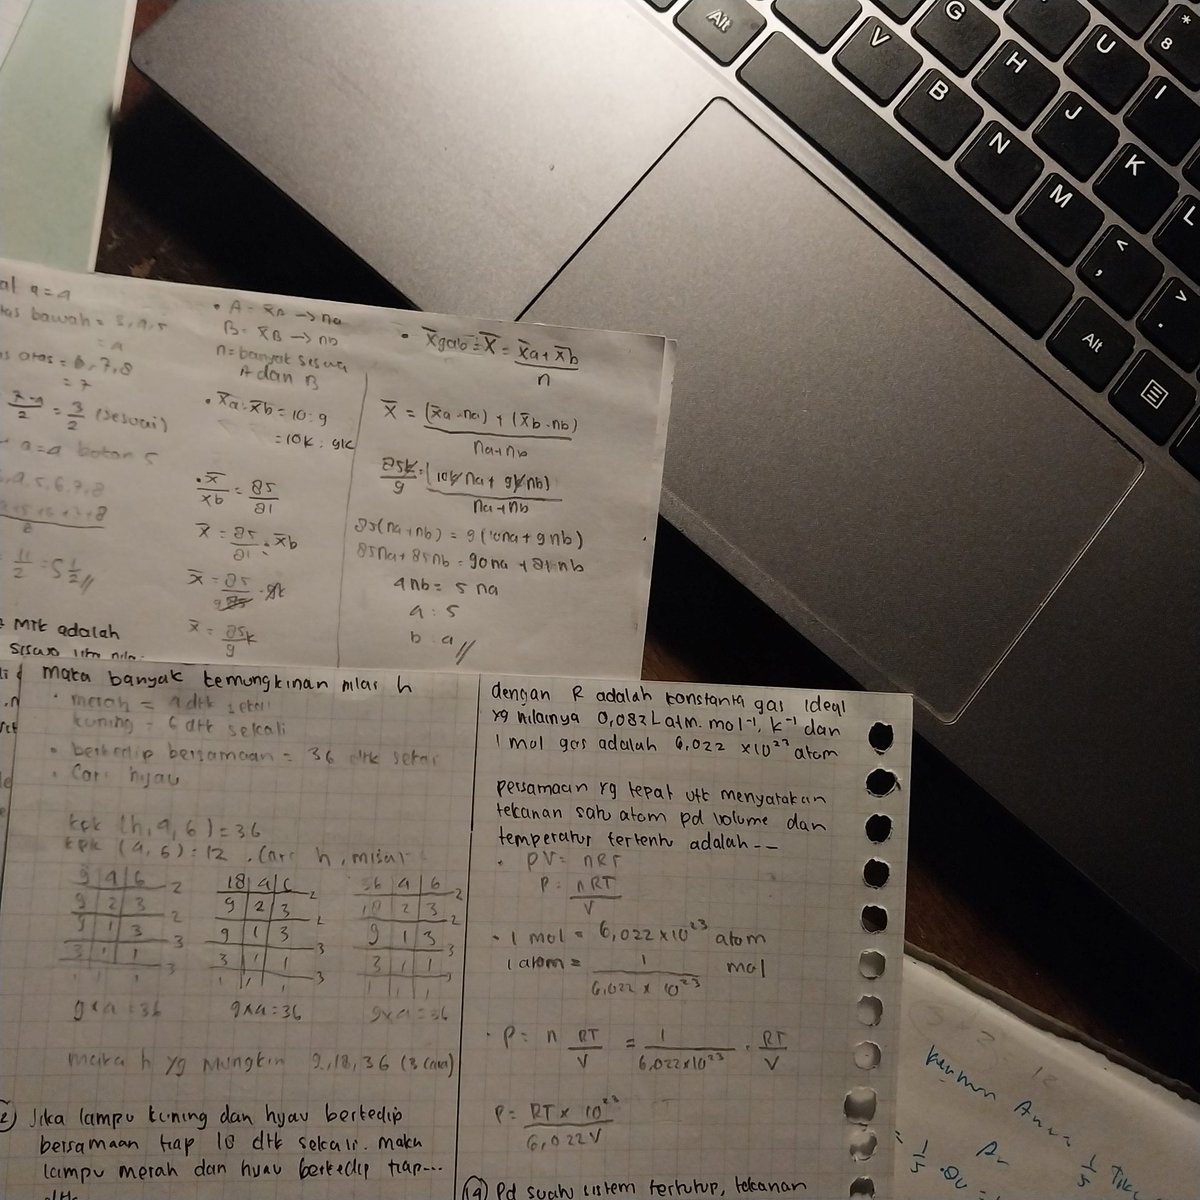 Alt
V
G
B
H
U
* 8
N
J
I
M
K
< ,
L
> .
Alt
al a=4
bawah = 3,4,5
= 4
atas = 6,7,8
= 7
7-4/2 = 3/2 (sesuai)
11/2 = 5 1/2 //
MTK adalah
• A = x̄A → na
B = x̄B → nb
n = banyak siswa
A dan B
• x̄a : x̄b = 10 : 9
= 10k : 9k
• x̄/xb = 85/81
x̄ = 85/81 · x̄b
x̄ = 85/9 · 9k
x̄ = 85k/9
• x̄gab = x̄ = x̄a + x̄b / n
x̄ = (x̄a·na) + (x̄b·nb) / na+nb
85k/9 = (10k na + 9k nb) / na+nb
85(na+nb) = 9(10na + 9nb)
85na + 85nb = 90na + 81nb
4nb = 5na
a : 5
b : 4 //
maka banyak kemungkinan nilai h
• merah = 4 dtk sekali
kuning = 6 dtk sekali
• berkedip bersamaan = 36 dtk sekali
• Cari hijau
kpk (h,4,6) = 36
kpk (4,6) = 12 . Cari h, misal
9 | 4 | 6  2
9 | 2 | 3  2
9 | 1 | 3  3
3 | 1 | 1  3
1 | 1 | 1
9×4 = 36
18 | 4 | 6  2
9 | 2 | 3  2
9 | 1 | 3  3
3 | 1 | 1  3
1 | 1 | 1
9×4 = 36
36 | 4 | 6  2
18 | 2 | 3  2
9 | 1 | 3  3
3 | 1 | 1
1 | 1 | 1
9×4 = 36
maka h yg mungkin 9,18,36 (3 cara)
2) Jika lampu kuning dan hijau berkedip
bersamaan tiap 18 dtk sekali. maka
lampu merah dan hijau berkedip tiap...
dtk
dengan R adalah konstanta gas ideal
yg nilainya 0,082 L atm. mol⁻¹, K⁻¹ dan
1 mol gas adalah 6,022 ×10²³ atom
persamaan yg tepat utk menyatakan
tekanan satu atom pd volume dan
temperatur tertentu adalah --
• PV = nRT
P = nRT/V
• 1 mol = 6,022×10²³ atom
1 atom = 1/6,022 × 10²³ mol
• P = n RT/V = 1/6,022×10²³ · RT/V
P = RT × 10²³/6,022V
14) Pd suatu sistem tertutup, tekanan
1/5
1/5